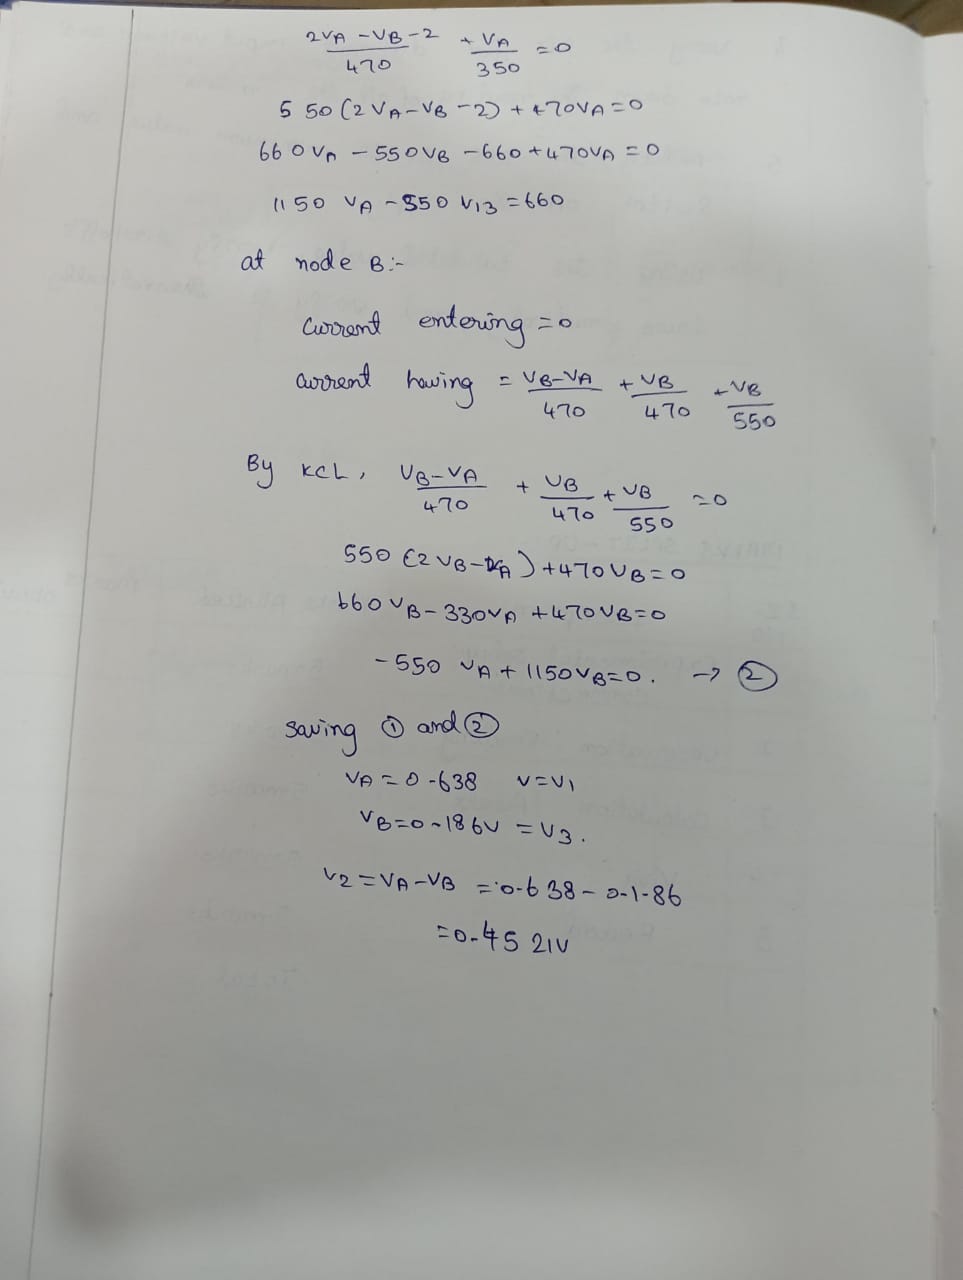 2VA - VB - 2 / 470 + VA / 350 = 0
5 50 (2 VA - VB - 2) + 470VA = 0
660 VA - 550VB - 660 + 470VA = 0
1150 VA - 550 V13 = 660
at node B:-
current entering = 0
current having = VB-VA / 470 + VB / 470 + VB / 550
By KCL, VB-VA / 470 + VB / 470 + VB / 550 = 0
550 (2 VB - VA) + 470VB = 0
660 VB - 330VA + 470VB = 0
- 550 VA + 1150VB = 0. → ②
Saving ① and ②
VA = 0-638 V = V1
VB = 0-186V = V3.
V2 = VA - VB = 0-638 - 0-1-86
= 0-45 21V